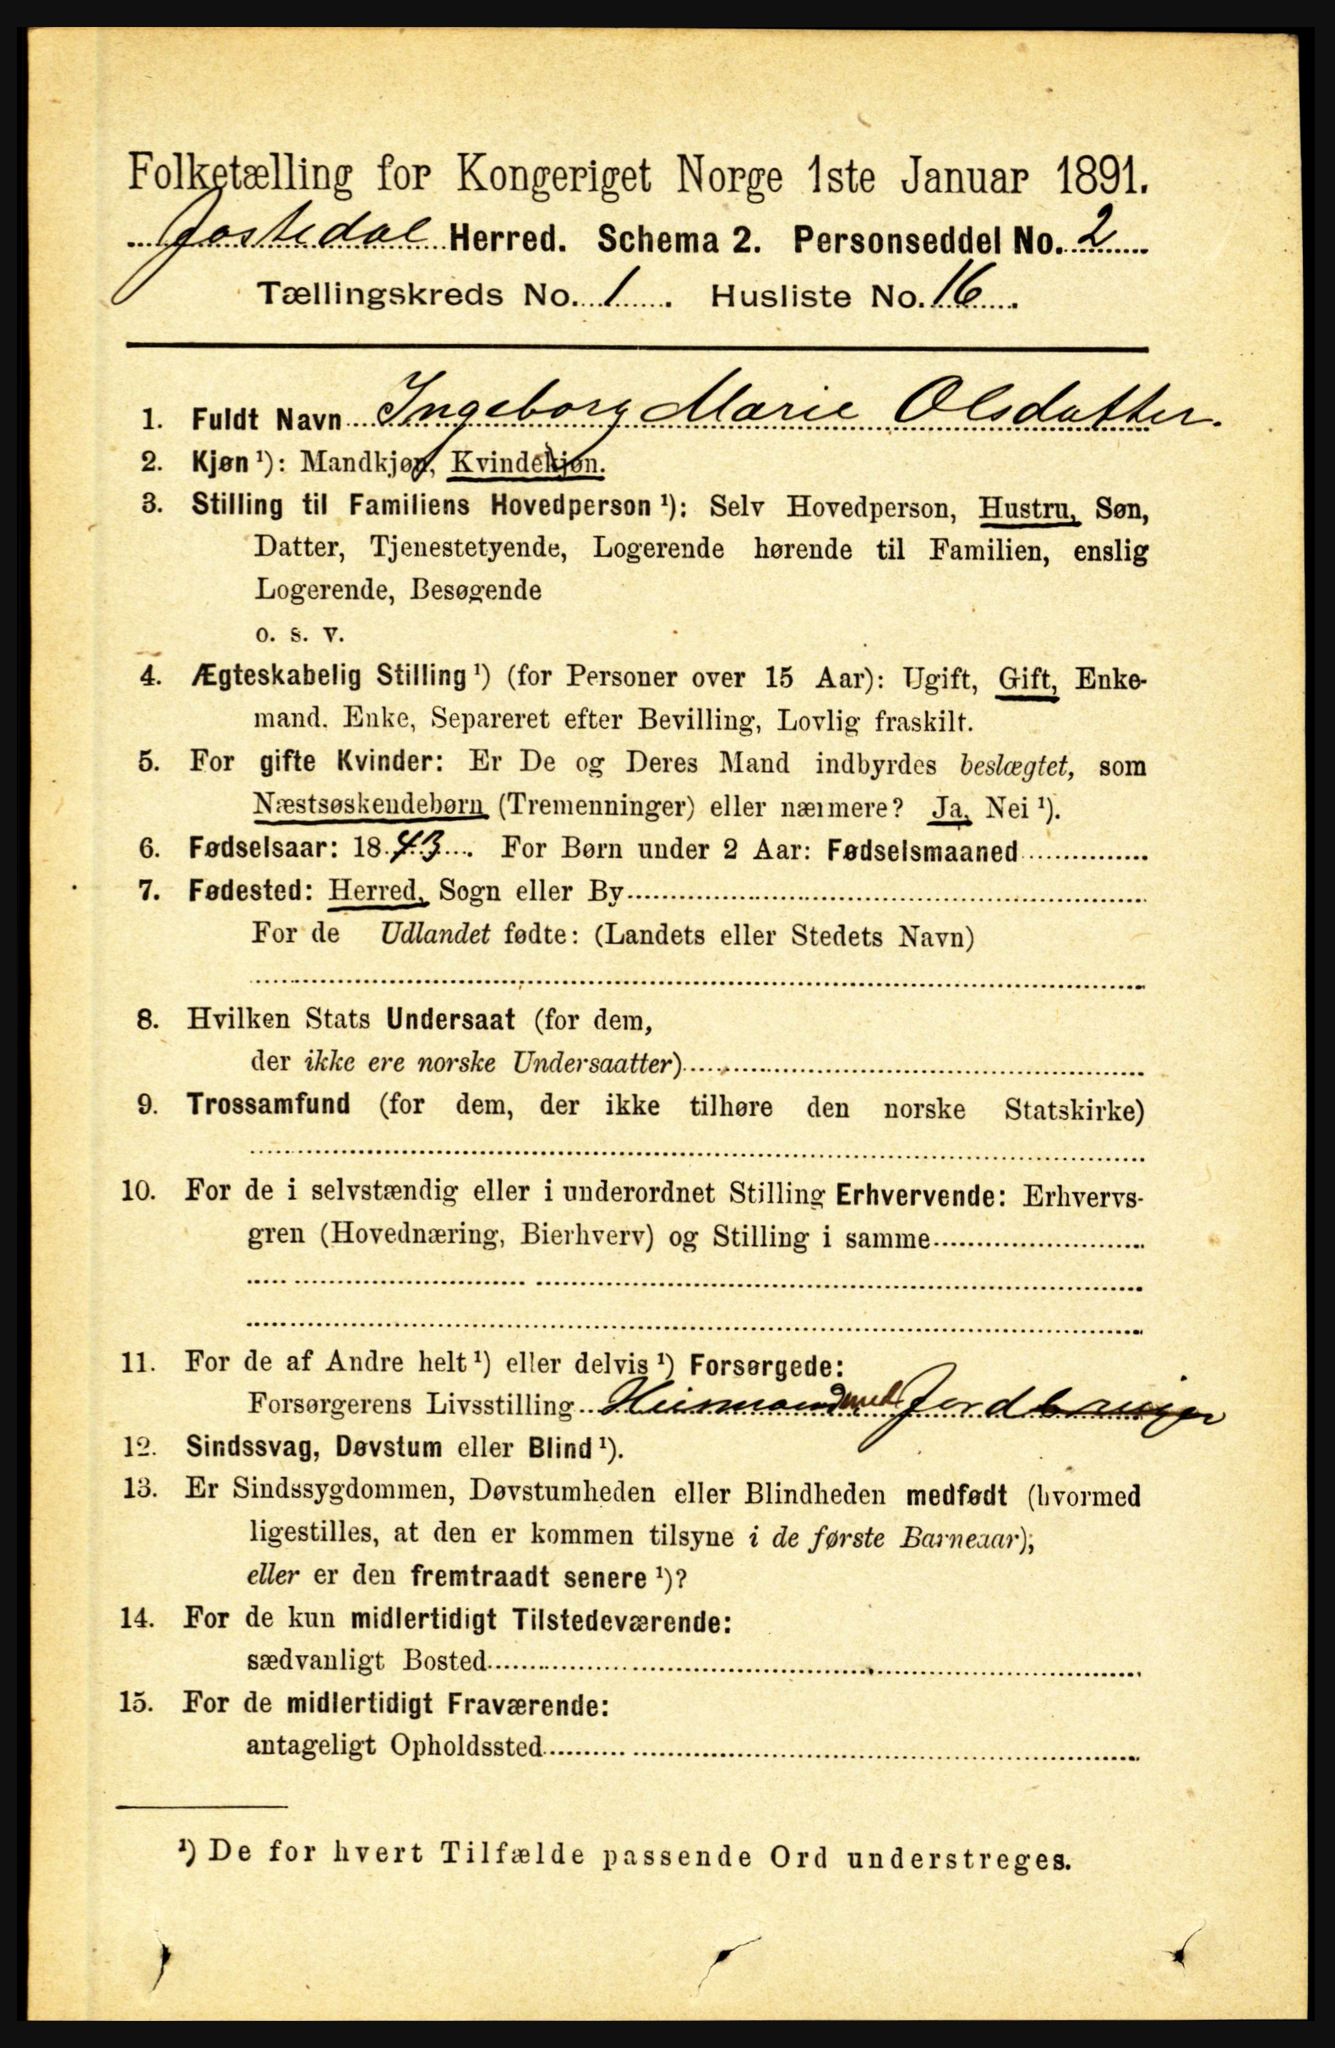 Folketælling for Kongeriget Norge 1ste Januar 1891.
Jostedal Herred. Schema 2. Personseddel No. 2
Tællingskreds No. 1. Husliste No. 16.
1. Fuldt Navn Ingeborg Marie Olsdatter.
2. Kjøn¹): Mandkjøn, Kvindekjøn.
3. Stilling til Familiens Hovedperson¹): Selv Hovedperson, Hustru, Søn,
Datter, Tjenestetyende, Logerende hørende til Familien, enslig
Logerende, Besøgende
o. s. v.
4. Ægteskabelig Stilling¹) (for Personer over 15 Aar): Ugift, Gift, Enke-
mand. Enke, Separeret efter Bevilling, Lovlig fraskilt.
5. For gifte Kvinder: Er De og Deres Mand indbyrdes beslægtet, som
Næstsøskendebørn (Tremenninger) eller nærmere? Ja, Nei¹).
6. Fødselsaar: 1843. For Børn under 2 Aar: Fødselsmaaned
7. Fødested: Herred, Sogn eller By
For de Udlandet fødte: (Landets eller Stedets Navn)
8. Hvilken Stats Undersaat (for dem,
der ikke ere norske Undersaatter)
9. Trossamfund (for dem, der ikke tilhøre den norske Statskirke)
10. For de i selvstændig eller i underordnet Stilling Erhvervende: Erhvervs-
gren (Hovednæring, Bierhverv) og Stilling i samme
11. For de af Andre helt¹) eller delvis¹) Forsørgede:
Forsørgerens Livsstilling Husmand med Jord
12. Sindssvag, Døvstum eller Blind¹).
13. Er Sindssygdommen, Døvstumheden eller Blindheden medfødt (hvormed
ligestilles, at den er kommen tilsyne i de første Barneaar);
eller er den fremtraadt senere¹)?
14. For de kun midlertidigt Tilstedeværende:
sædvanligt Bosted
15. For de midlertidigt Fraværende:
antageligt Opholdssted
¹) De for hvert Tilfælde passende Ord understreges.